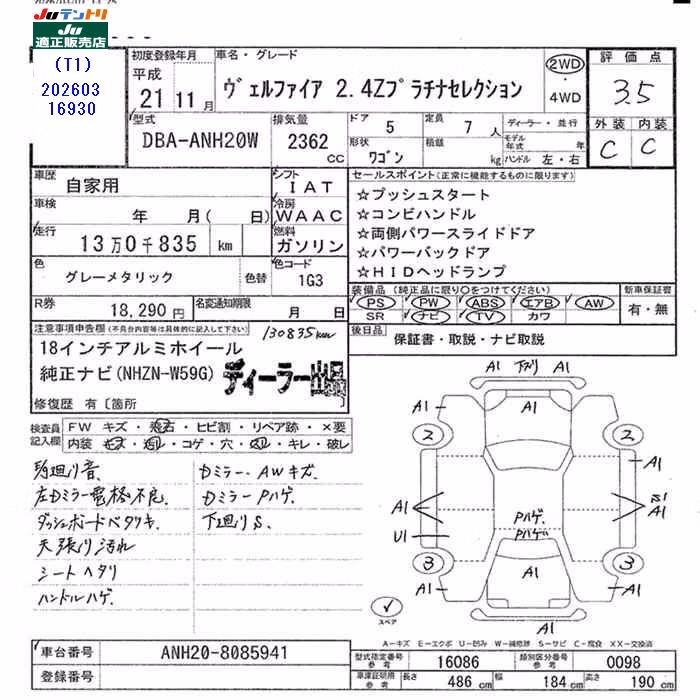 JUテントリ
JU
適正販売店
(T1)
202603
16930
初度登録年月
平成
21 11月
車名・グレード
ヴェルファイア 2.4Zプラチナセレクション
2WD
4WD
評価点
3.5
外装 内装
C C
型式
DBA-ANH20W
排気量
2362
CC
ドア 5
定員 7 人
ディーラー・並行
形状
ワゴン
積載
kg
モデル年式 年
ハンドル 左・右
車歴 自家用
シフト
IAT
車検 年 月( 日)
冷房
WAAC
走行 13万0千835 km
燃料
ガソリン
色 グレーメタリック 色替
色コード
1G3
R券 18,290円
名変通知期限 月 日
セールスポイント(正常に機能するものに限ります)
☆プッシュスタート
☆コンビハンドル
☆両側パワースライドドア
☆パワーバックドア
☆HIDヘッドランプ
装備品(純正品に限り○をつけてください)
PS PW ABS エアB AW
SR ナビ TV カワ
新車保証書
有・無
後日品 保証書・取説・ナビ取説
注意事項申告欄(不具合内容等は具体的に記入して下さい)
130835km
18インチアルミホイール
純正ナビ(NHZN-W59G)
ディーラー出品
修復歴 有〔箇所
検査員記入欄
FW キズ・飛石・ヒビ割・リペア跡・×要
内装 キズ・汚レ・コゲ・穴・スレ・キレ・破レ
足廻り音
左Dミラー電格不良
ダッシュボードベタツキ
天張り汚れ
シートヘタリ
ハンドルハゲ
Dミラー・AWキズ
DミラーPハゲ
下廻りS
A1 下ズリ A1
A1 A1 A1
2 2
A1
A1 A1
U1
Pハゲ
Pハゲ
3 3
A1 A1 A1
A1 A1
スペア
A-キズ E-エクボ U-凹み W-補修跡 S-サビ C-腐食 XX-交換済
車台番号 ANH20-8085941
登録番号
型式指定番号 参考 16086
類別区分番号 参考 0098
車庫証明用 参考 長さ 486 cm 幅 184 cm 高さ 190 cm